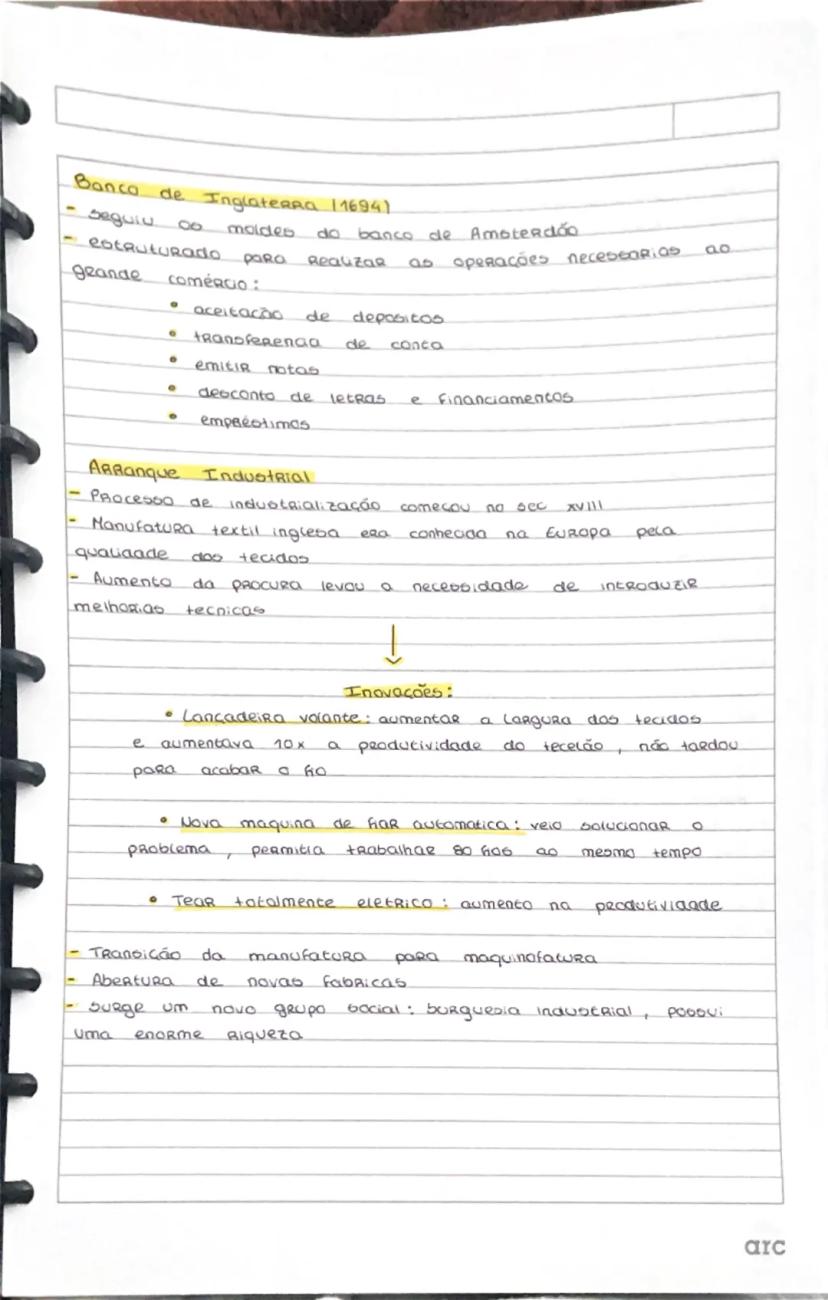 Banco de Inglaterra (1694)
- seguiu os moldes do banco de Amsterdão
- estruturado para realizar as operações necessarias ao
grande comércio:
• aceitação de depositos
• transferencia de conta
• emitir notas
• desconto de letras e financiamentos
• empréstimos
Arranque Industrial
- Processo de industrialização começou no sec XVIII
- Manufatura textil inglesa era conhecida na Europa pela
qualidade dos tecidos
- Aumento da procura levou a necessidade de introduzir
melhorias tecnicas
↓
Inovações:
• Lançadeira volante: aumentar a largura dos tecidos
e aumentava 10x a produtividade do tecelão, não tardou
para acabar o fio
• Nova maquina de fiar automatica: veio solucionar o
problema, permitia trabalhar 80 fios ao mesmo tempo
• Tear totalmente eletrico: aumento na produtividade
- Transição da manufatura para maquinofatura
- Abertura de novas fabricas
- Surge um novo grupo social: burguesia industrial, possui
uma enorme riqueza
arc